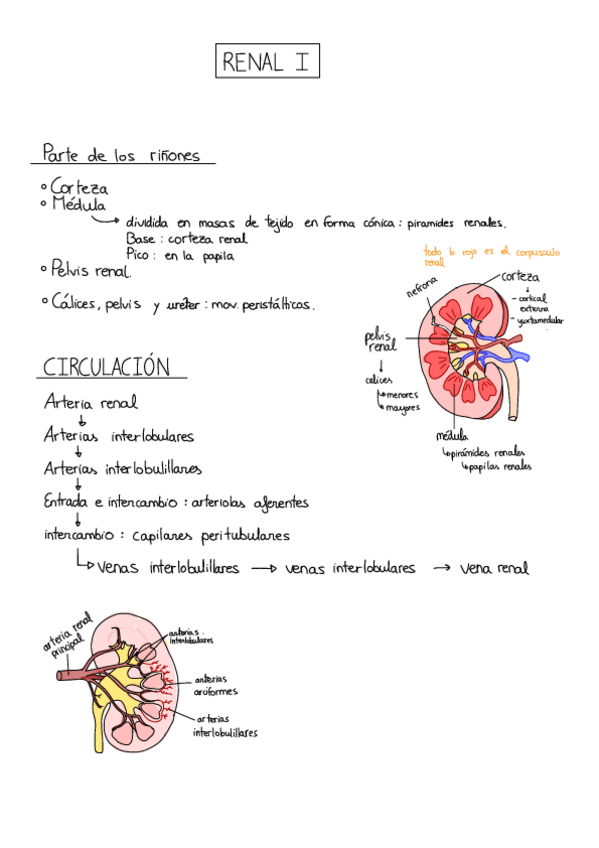 RENAL I
Parte de los riñones
Corteza
Médula
dividida en masas de tejido en forma cónica: piramides renales.
Base: corteza renal
Pico: en la papila
Pelvis renal.
Cálices, pelvis y uréter: mov. peristálticos.
todo lo rojo es el corpusculo
renal
nefrona
corteza
- cortical
externa
- yuxtamedular
pelvis
renal
calices
menores
mayores
médula
pirámides renales
papilas renales
CIRCULACIÓN
Arteria renal
Arterias interlobulares
Arterias interlobulillares
Entrada e intercambio: arteriolas aferentes
intercambio: capilares peritubulares
venas interlobulillares → venas interlobulares → vena renal
arteria renal
principal
arterias
interlobulares
arterias
arciformes
arterias
interlobulillares